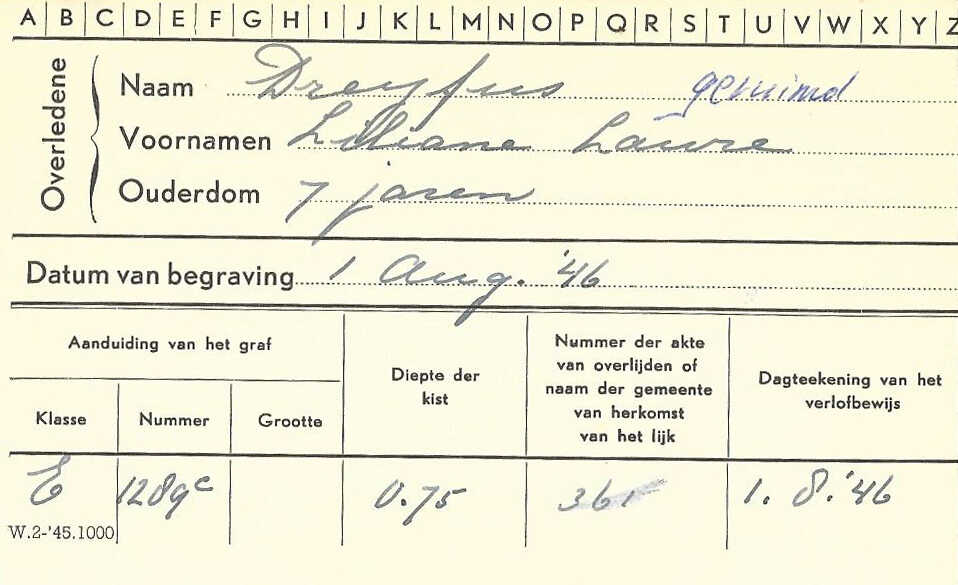 A B C D E F G H I J K L M N O P Q R S T U V W X Y Z
Overledene
Naam Dreyfus geruimd
Voornamen Lilliane Laure
Ouderdom 7 jaren
Datum van begraving 1 Aug. '46
Aanduiding van het graf
Klasse Nummer Grootte
Diepte der
kist
Nummer der akte
van overlijden of
naam der gemeente
van herkomst
van het lijk
Dagteekening van het
verlofbewijs
E 1289c 0.75 1. 8. '46
W.2-'45.1000